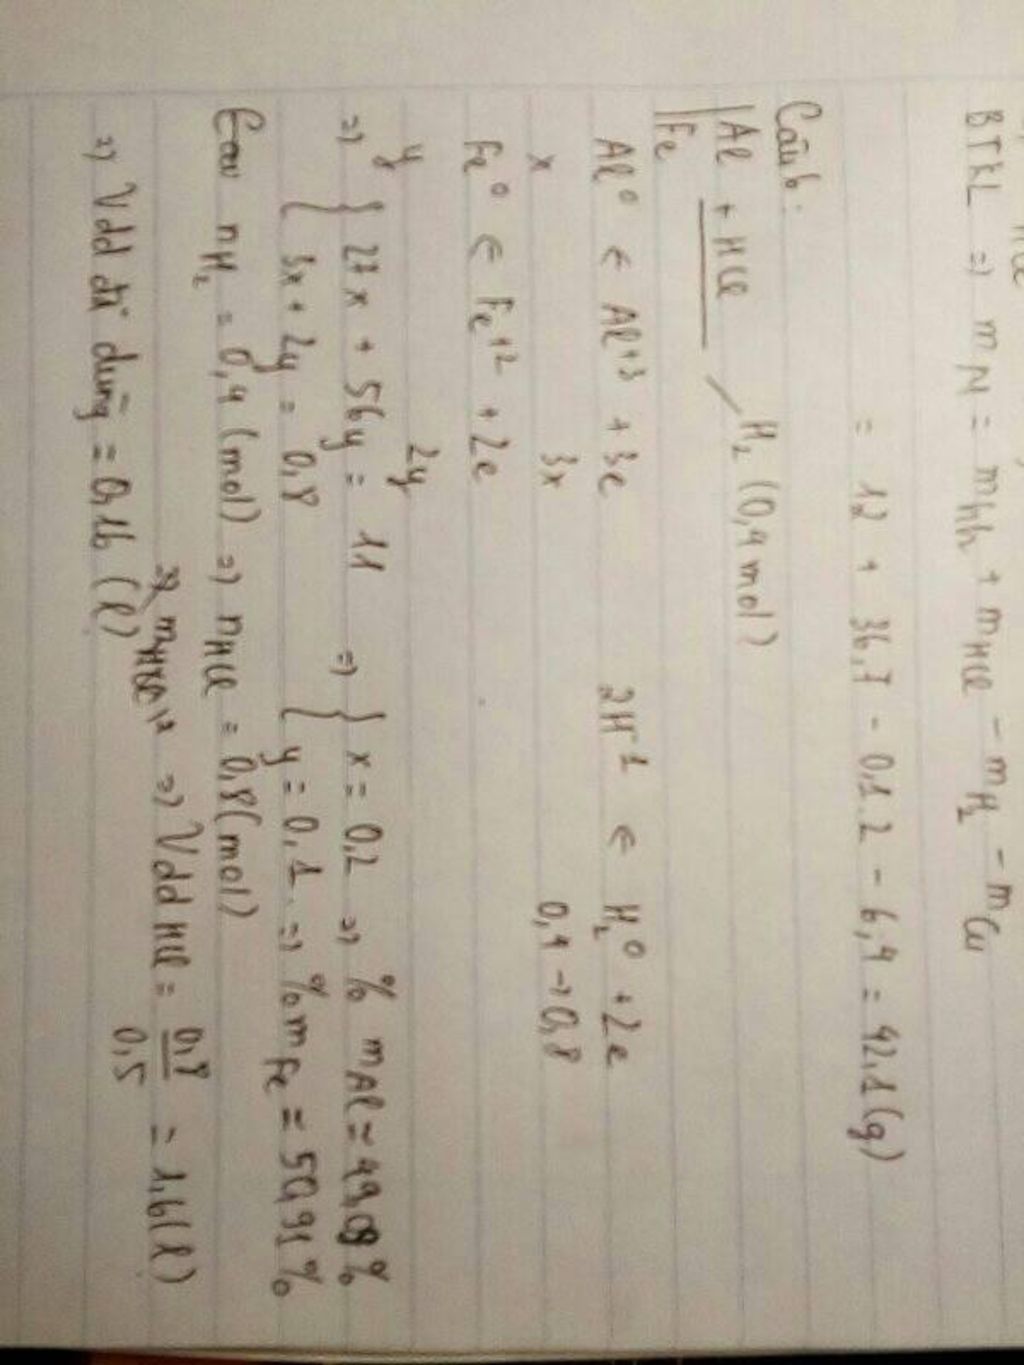 HCl
BTKL => mM = mhh + mHCl - mH2 - mCu
= 12 + 36,7 - 0,1.2 - 6,4 = 42,1(g)
Câu 6.
Al + HCl
H2 (0,4 mol)
Fe
Al⁰ ∈ Al⁺³ + 3e 2H⁻¹ ∈ H2⁰ + 2e
x 3x 0,4 -> 0,8
Fe⁰ ∈ Fe⁺² + 2e
y 2y
=> { 27x + 56y = 11 => { x = 0,2 => % mAl = 49,09%
{ 3x + 2y = 0,8 { y = 0,1 => %mFe = 50,91%
nH2 = 0,4 (mol) => nHCl = 0,8(mol)
=> Vdd HCl = 0,8/0,5 = 1,6(l)
=> Vdd đã dùng = 0,16 (l)